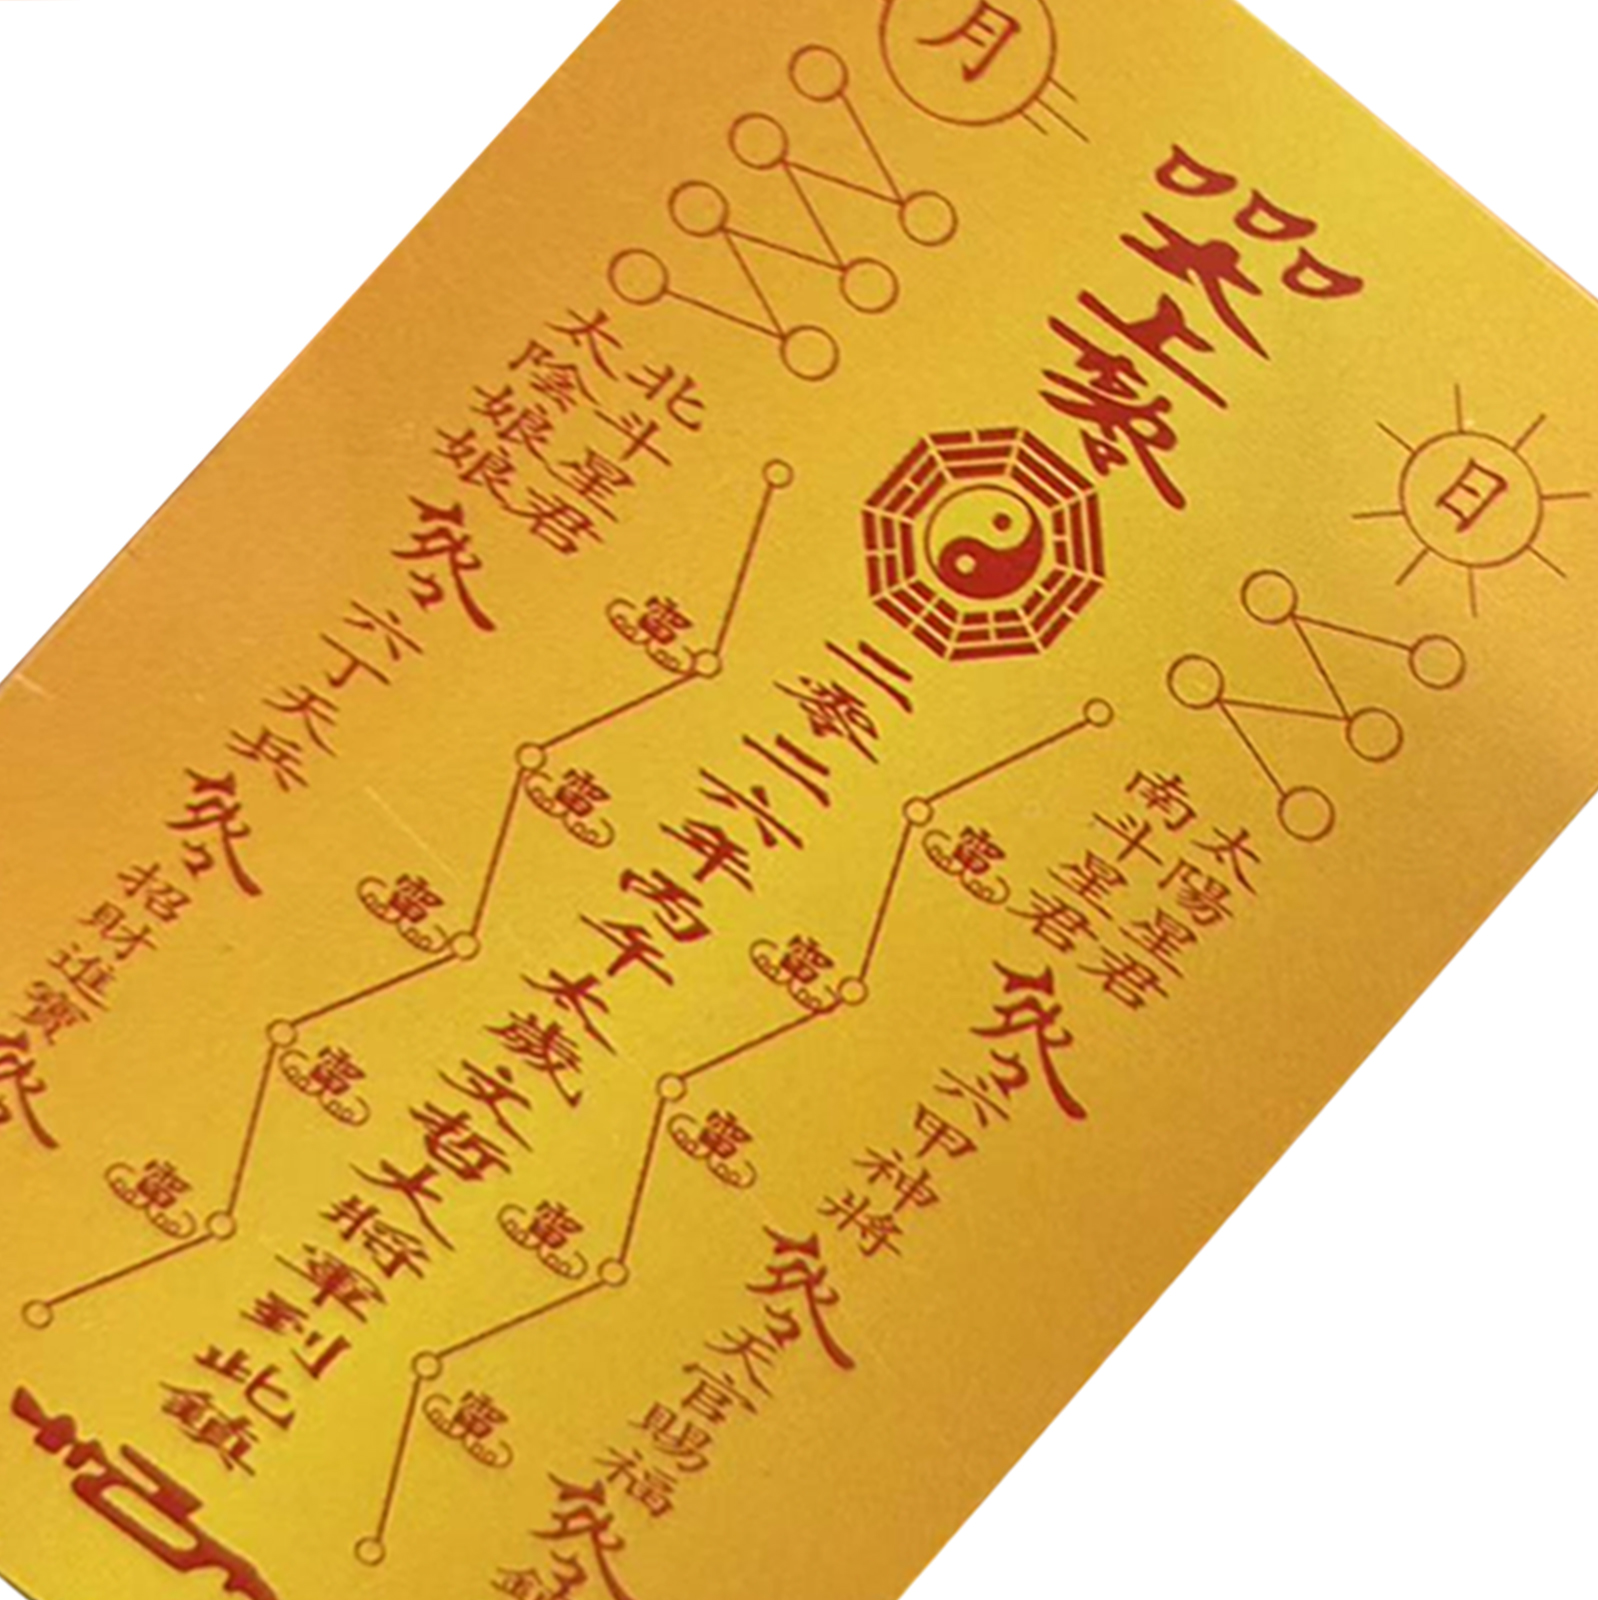 日
太陽星君
南斗星君
六甲神將
天官賜福
太上敕
二零二六年丙午太歲文哲大將軍到此鎮
月
北斗星君
太陰娘娘
六丁天兵
招財進寶